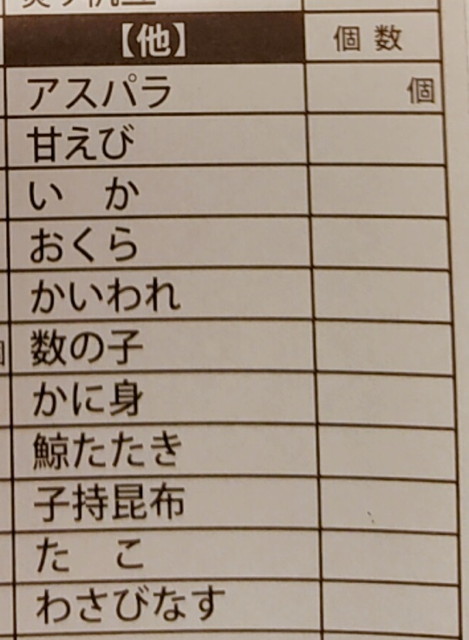 【他】 個数
アスパラ 個
甘えび
いか
おくら
かいわれ
数の子
かに身
鯨たたき
子持昆布
たこ
わさびなす